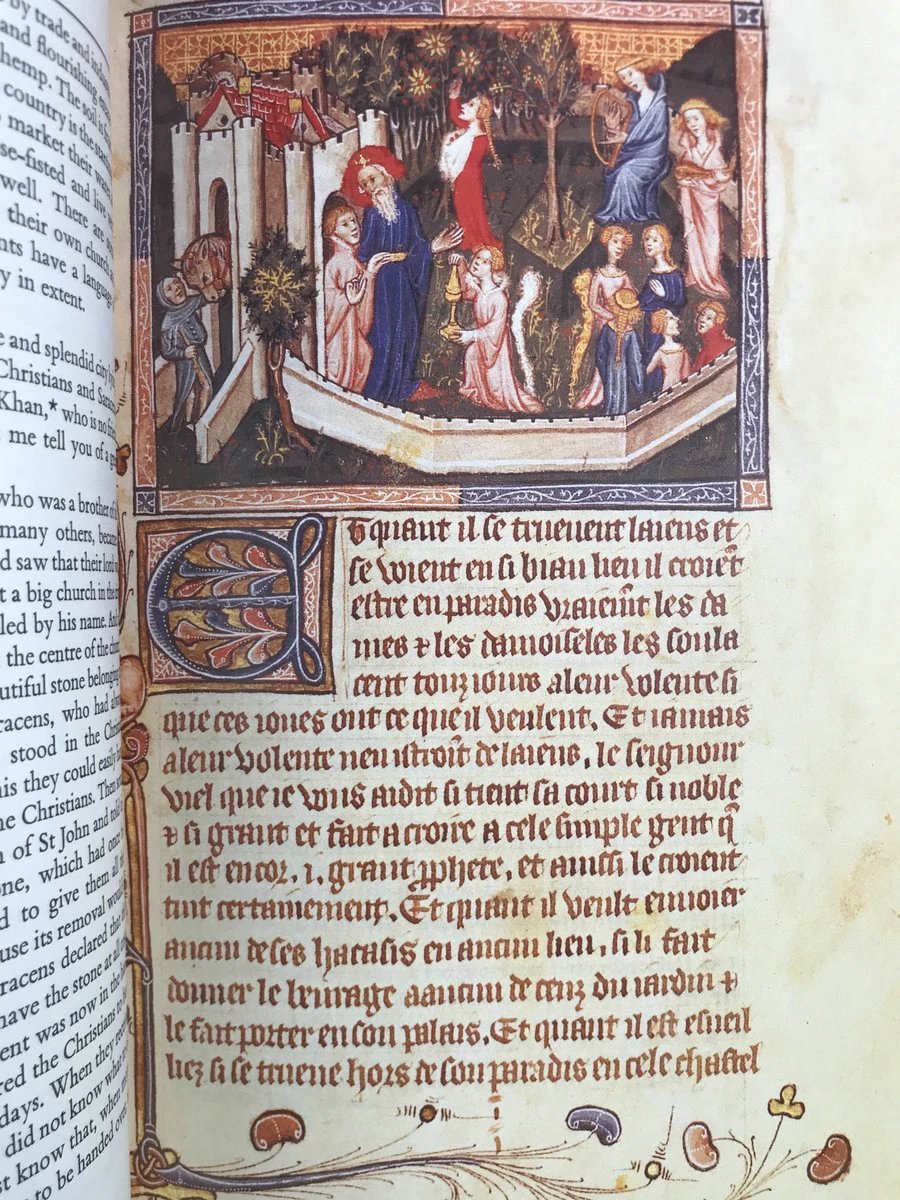 by trade and
and flourishing
hemp. The soil is
country is the
market their wares
and live
well. There are
their own church
have a language
in extent.
and splendid city
Christians and
Khan,* who is no
me tell you of a
who was a brother of
many others,
saw that their lord
a big church in the
by his name. And
the centre of the
stone belonging
who had
stood in the
they could easily
Christians. Then
of St John and told
which had once
to give them all
its removal
declared that
have the stone at all
was now in the
the Christians to
days. When they
did not know what
know that, when
to be handed over
Et quant il se truevent laiens et
se voient en si biau lieu il croiēt
estre en paradis vraiemt les da
mes ⁊ les damoiseles les soula
cent touz iours a leur volente si
que ces iones ont ce que il veulent. Et iamais
a leur volente nen istroīt de laiens. le seignour
viel que ie vous ai dit si tient sa court si noble
⁊ si grant et fait a croire a cele simple gent q̄
il est encor. i. grant ꝓphete. et ainssi le croient
tuit certainement. Et quant il veult enuoier
aucun de ses hacasis en aucun lieu. si li fait
donner le beurage a aucun de ceuz du iardin ⁊
le fait porter en son palais. Et quant il est esueil
liez si se trueue hors de son paradis en cele chastel